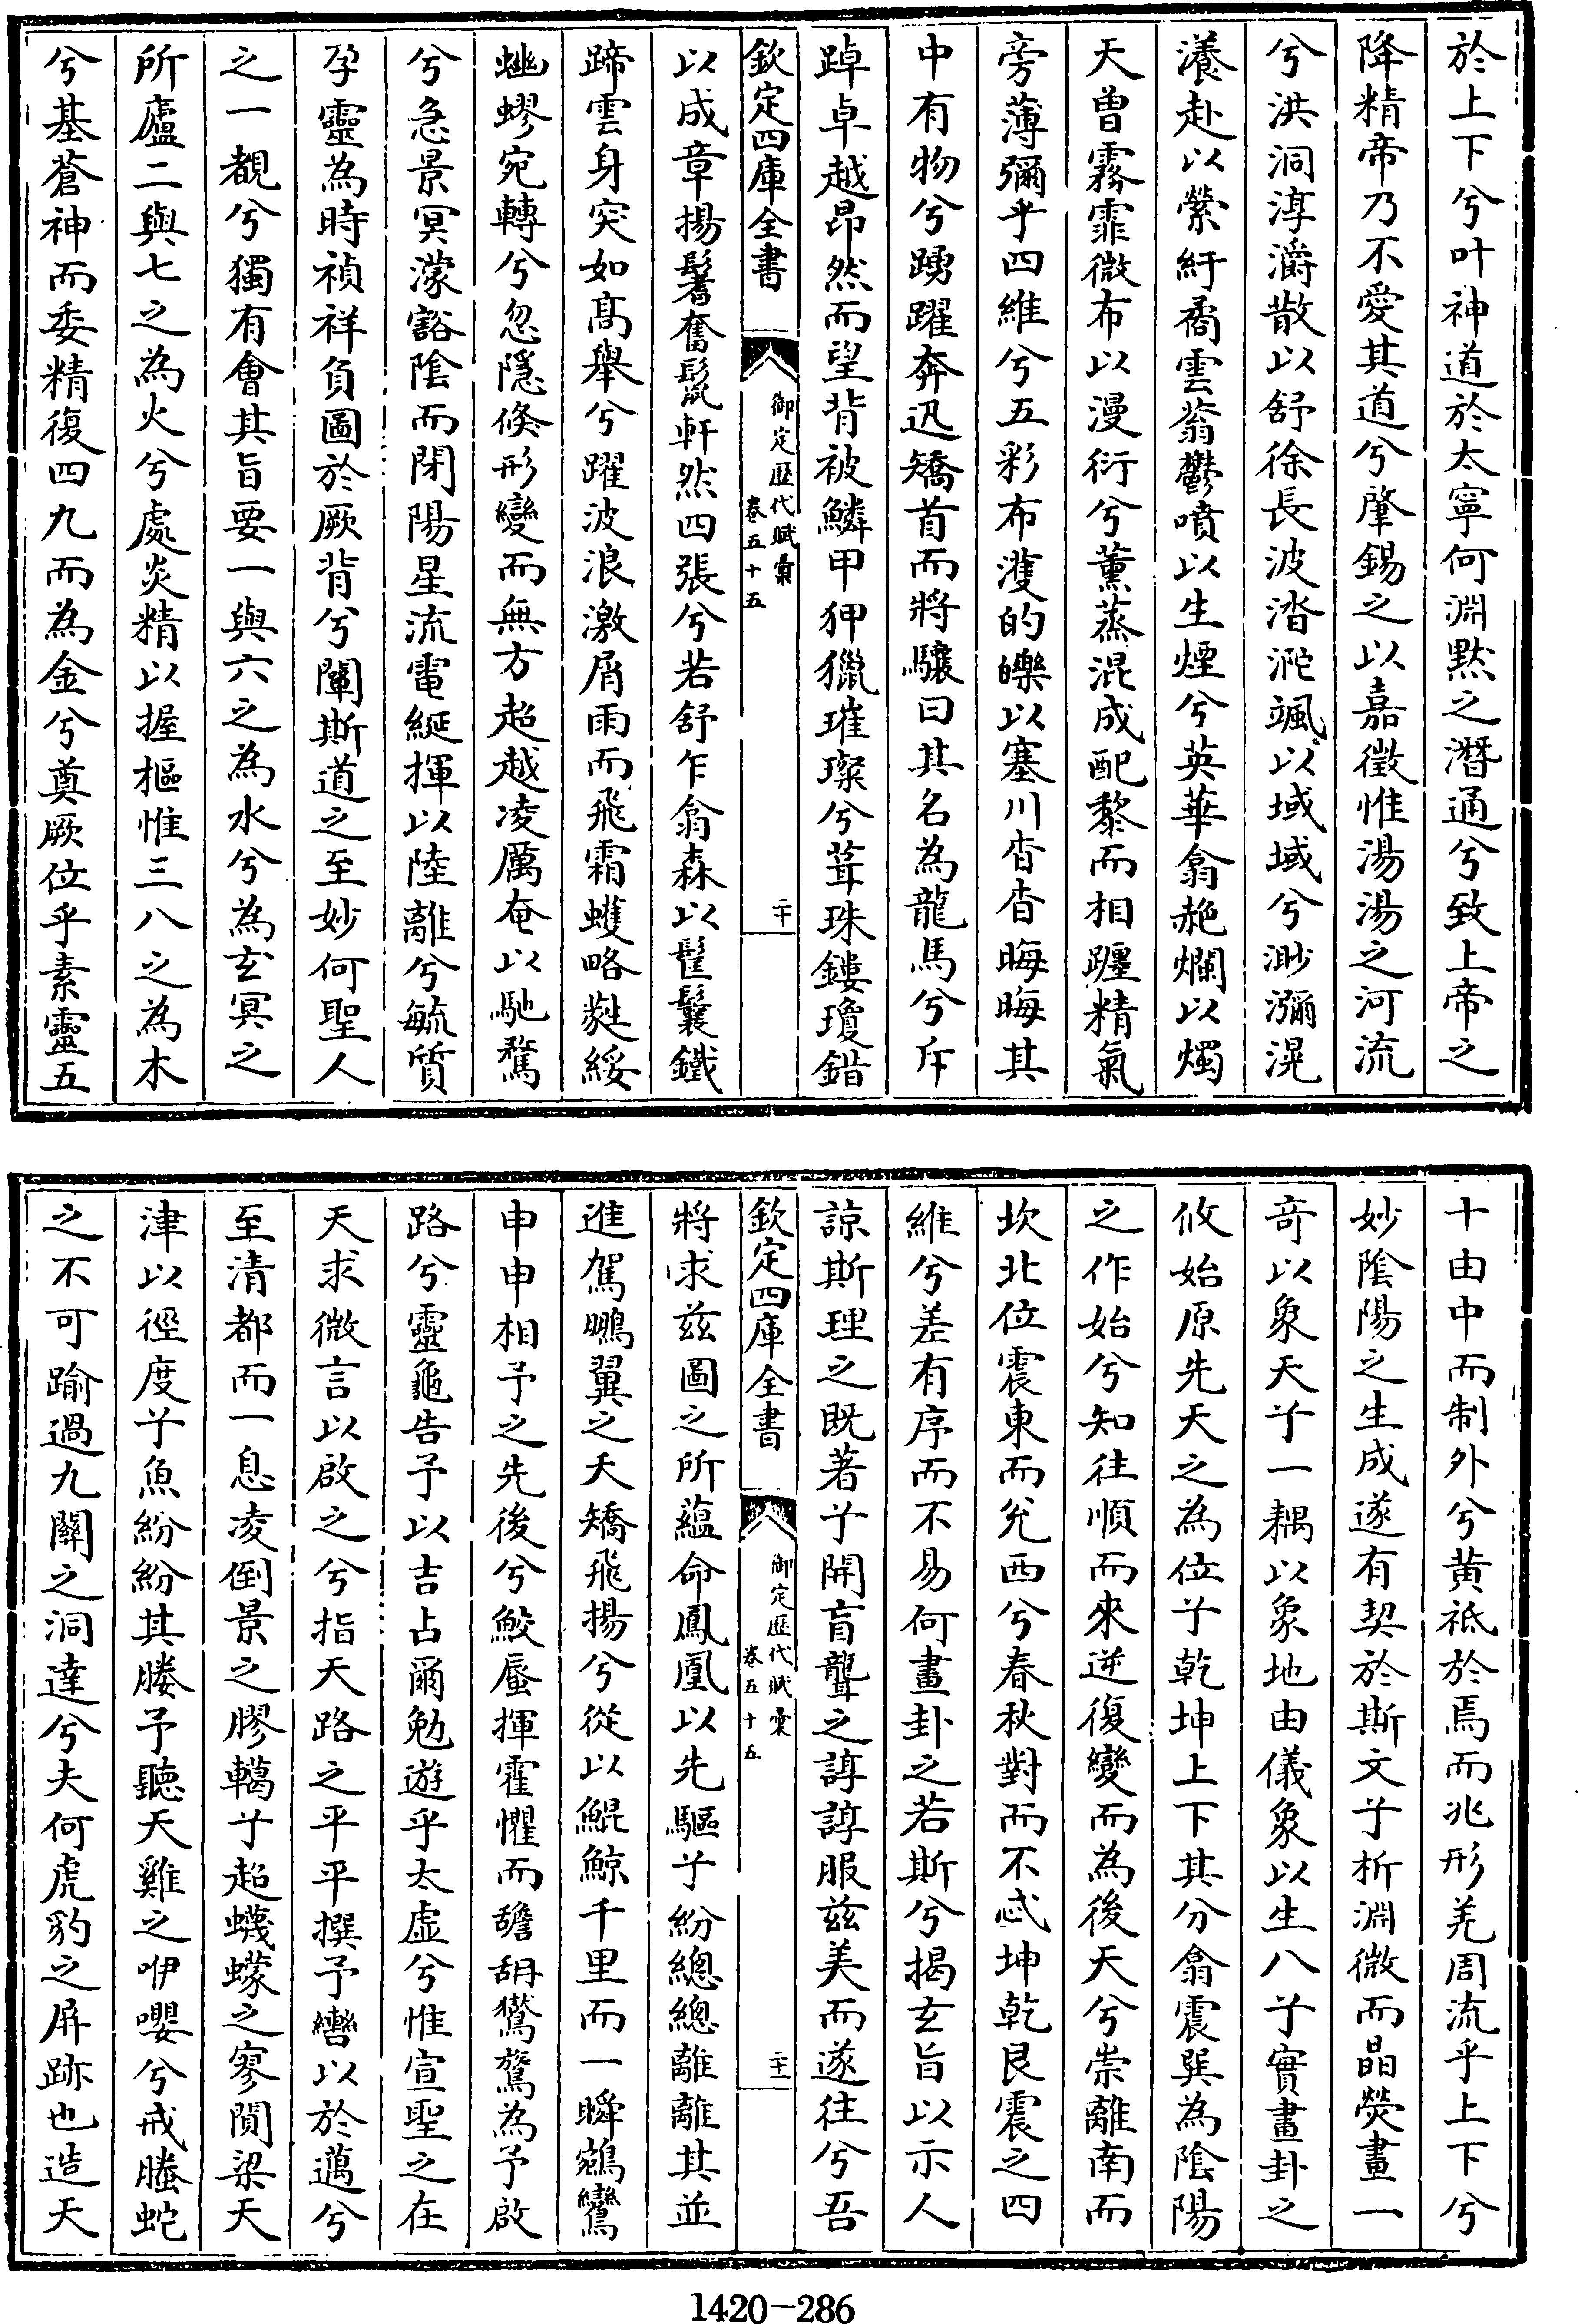 於上下兮叶神道於太寧何淵默之潛通兮致上帝之
降精帝乃不愛其道兮肇錫之以嘉徵惟湯湯之河流
兮洪洞淳灂散以舒徐長波涾沲颯以域域兮渺瀰滉
瀁赴以縈紆矞雲蓊鬱噴以生煙兮英華翕赩爛以燭
天曾霧霏微布以漫衍兮薰蒸混成配黎而相躔精氣
旁薄彌乎四維兮五彩布濩的皪以塞川杳杳晦晦其
中有物兮踴躍奔迅矯首而將驤曰其名為龍馬兮斥
踔卓越昂然而望背被鱗甲狎獵璀璨兮葺珠鏤瓊錯
欽定四庫全書 御定歷代賦彙 卷五十五 二十
以成章揚鬐奮鬣軒然四張兮若舒乍翕森以髦鬤鐵
蹄雲身突如高舉兮躍波浪激屑雨而飛霜蠖略蕤綏
蚴蟉宛轉兮忽隱倏形變而無方超越凌厲奄以馳騖
兮急景冥濛豁陰而閉陽星流電綖揮以陸離兮毓質
孕靈為時禎祥負圖於厥背兮闡斯道之至妙何聖人
之一覩兮獨有會其旨要一與六之為水兮為玄冥之
所廬二與七之為火兮處炎精以握樞惟三八之為木
兮基蒼神而委精復四九而為金兮奠厥位乎素靈五
十由中而制外兮黃祗於焉而兆形羌周流乎上下兮
妙陰陽之生成遂有契於斯文兮析淵微而晶熒畫一
奇以象天兮一耦以象地由儀象以生八兮實畫卦之
攸始原先天之為位兮乾坤上下其分翕震巽為陰陽
之作始兮知往順而來逆復變而為後天兮崇離南而
坎北位震東而兌西兮春秋對而不忒坤乾艮震之四
維兮差有序而不易何畫卦之若斯兮揭玄旨以示人
諒斯理之既著兮開盲聾之諄諄服茲美而遂往兮吾
欽定四庫全書 御定歷代賦彙 卷五十五 二十一
將求茲圖之所蘊命鳳凰以先驅兮紛總總離離其並
進駕鵬翼之夭矯飛揚兮從以鯤鯨千里而一瞬鵷鸞
申申相予之先後兮鮫蜃揮霍懼而韽胡鸑鷟為予啟
路兮靈龜告予以吉占爾勉遊乎太虛兮惟宣聖之在
天求微言以啟之兮指天路之平平撰予轡以於邁兮
至清都而一息凌倒景之膠轕兮超蠛蠓之寥閴梁天
津以徑度兮魚紛紛其媵予聽天雞之咿嚶兮戒螣蛇
之不可踰過九關之洞達兮夫何虎豹之屏跡也造天
1420-286